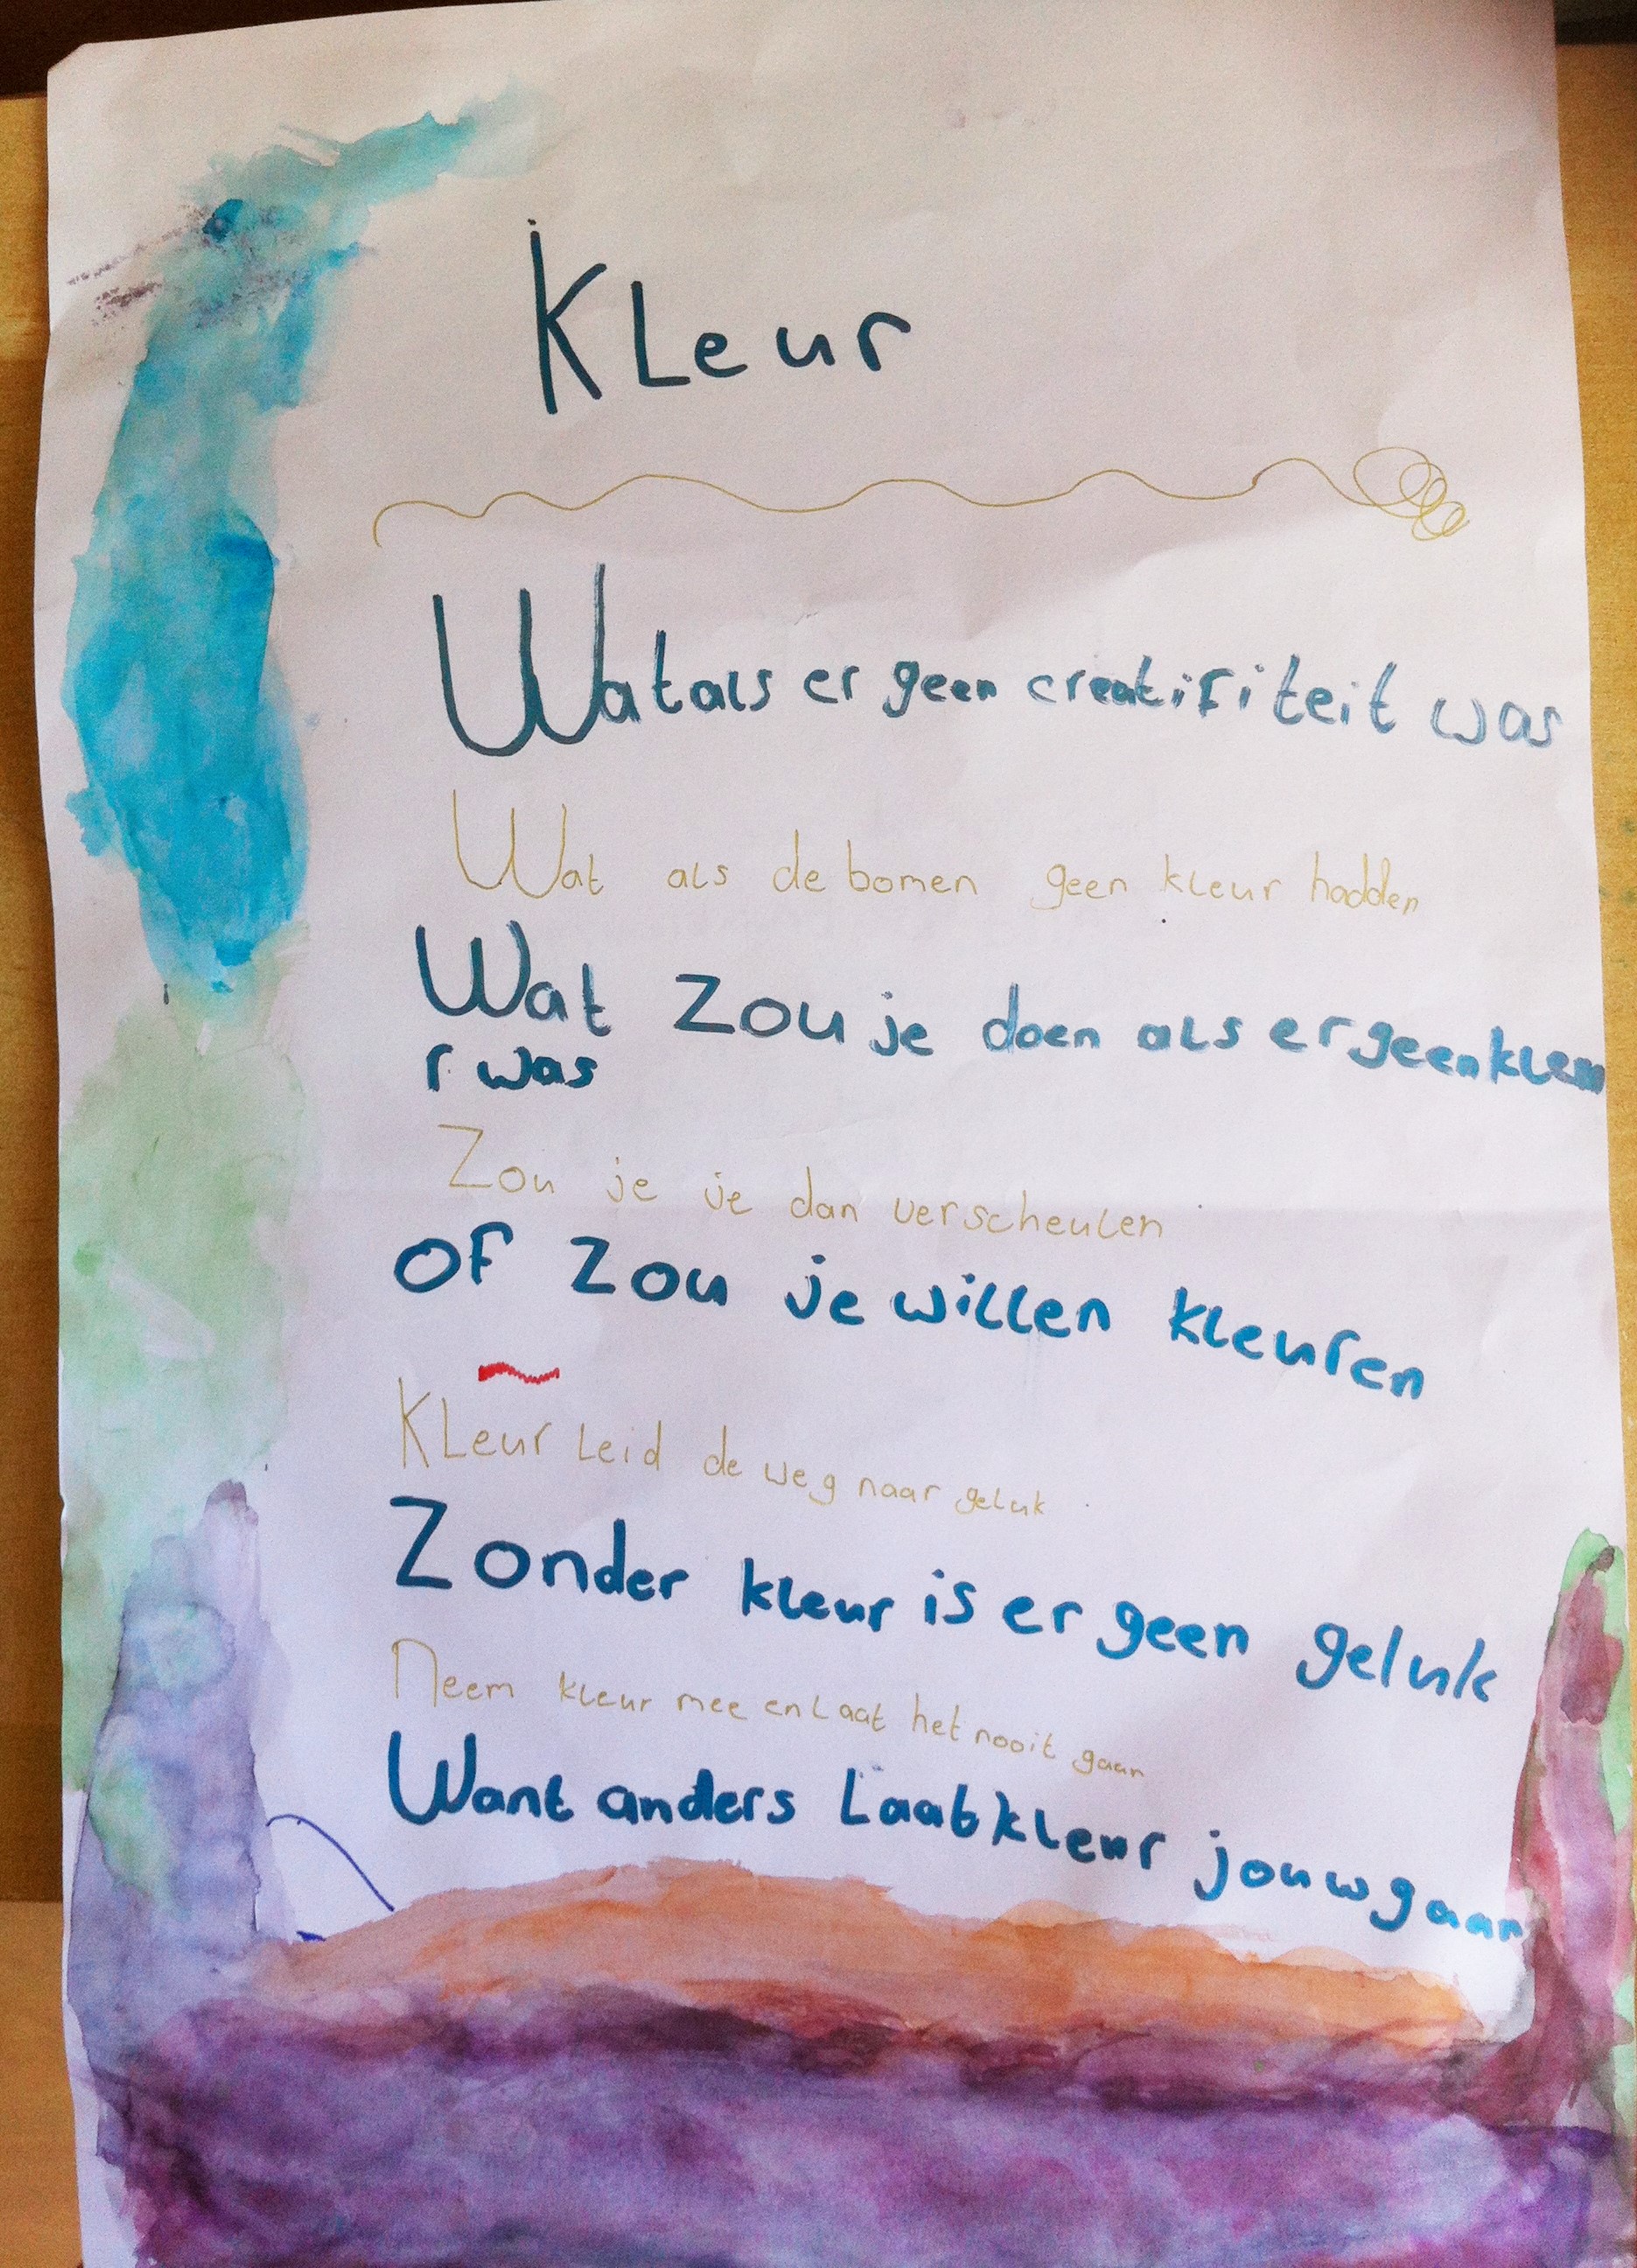 Kleur
Wat als er geen creatifiteit was
Wat als de bomen geen kleur hadden
Wat zou je doen als er geen kleu
r was
Zou je je dan verscheulen
of zou je willen kleuren
Kleur leid de weg naar geluk
Zonder kleur is er geen geluk
Neem kleur mee en laat het nooit gaan
Want anders Laat kleur jouw gaan